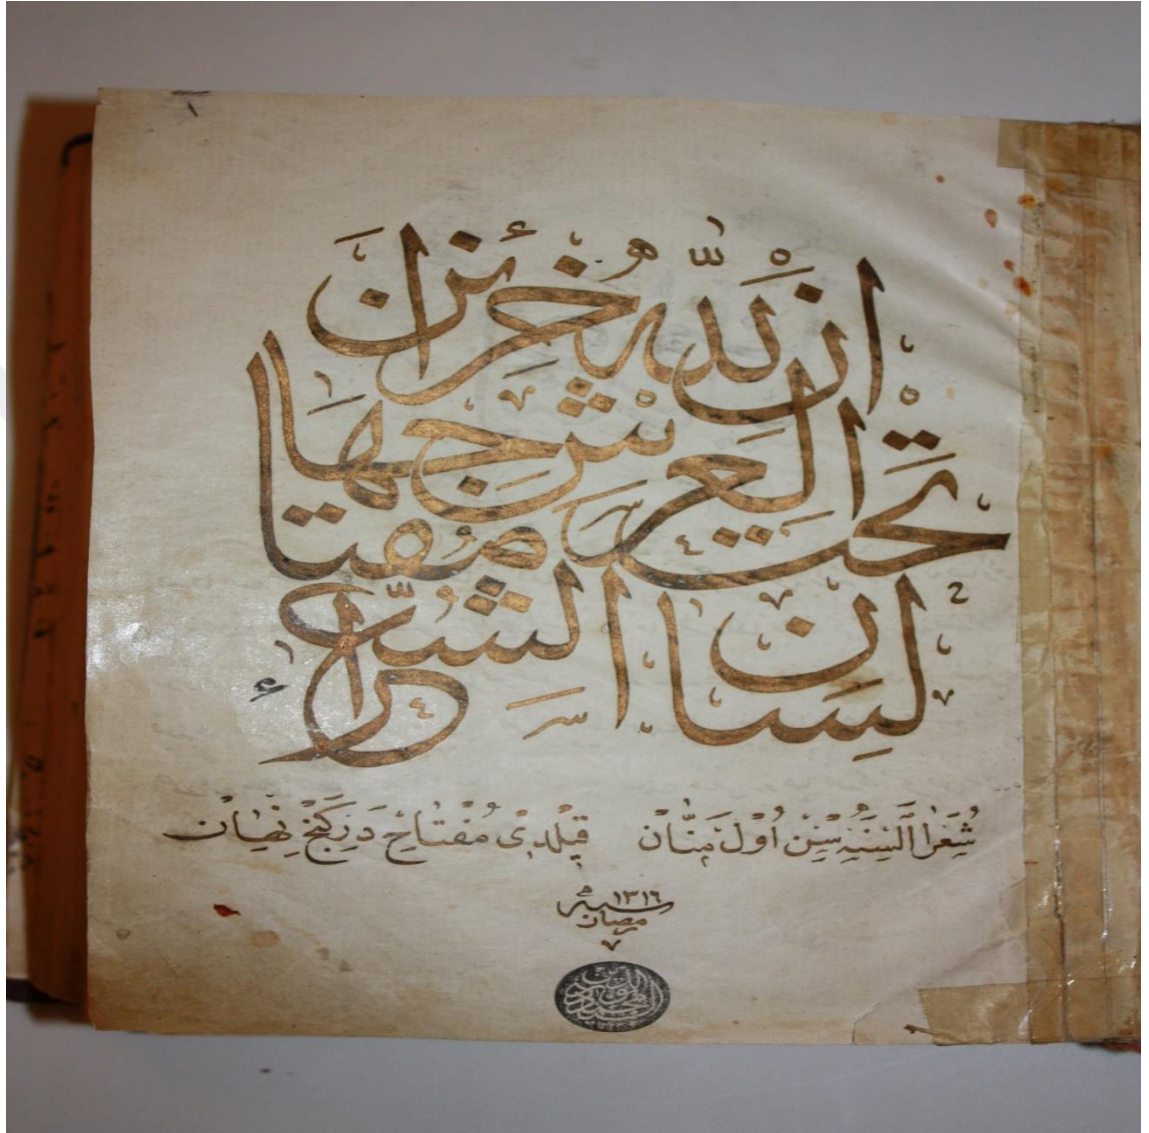 ان لله خزائن
تحت العرش
مفتاحها
لسان الشعراء
شُعَرَا اَلْسِنَهسِنِ اُولْ مَنَّانْ قِيلْدِى مُفْتَاحِ دَرِ كَنْجِ نِهَانْ
سنه ١٣١٦
رمضان
٧